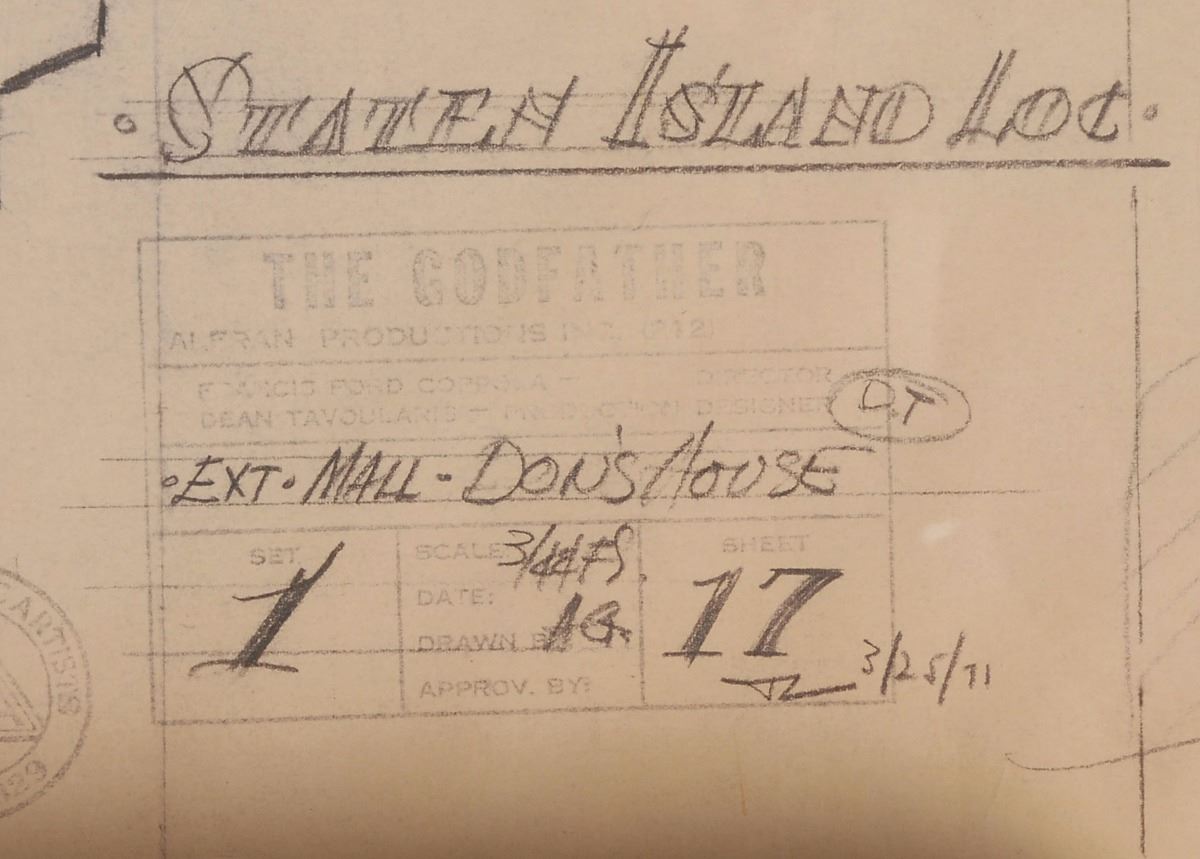 • STATEN ISLAND LOC •
THE GODFATHER
ALFRAN PRODUCTIONS INC. (212)
FRANCIS FORD COPPOLA – DIRECTOR
DEAN TAVOULARIS – PRODUCTION DESIGNER
D.T
• EXT • MALL - DON'S HOUSE
SET
1
SCALE
DATE:
DRAWN BY
APPROV. BY:
SHEET
17
3/25/71
ARTISTS
829